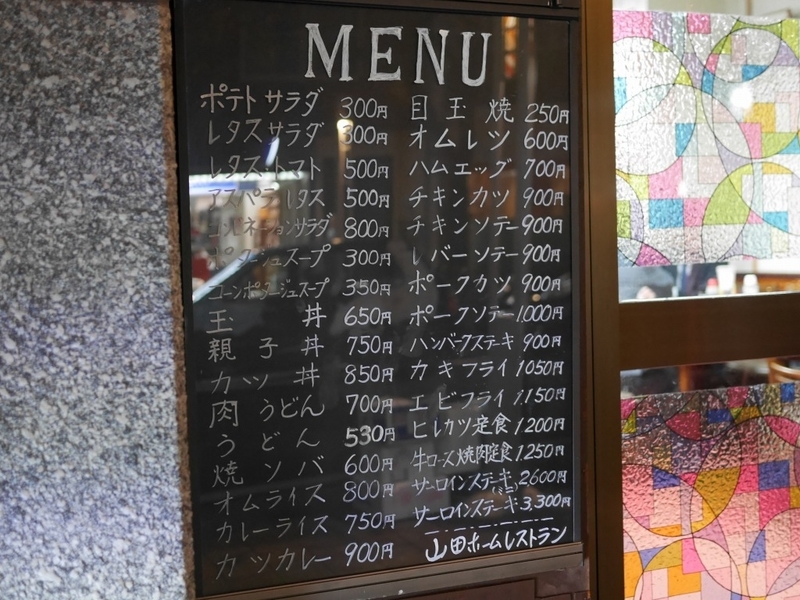 MENU
ポテトサラダ 300円
レタスサラダ 300円
レタストマト 500円
アスパラレタス 500円
コンビネーションサラダ 800円
ポタージュスープ 300円
コーンポタージュスープ 350円
玉丼 650円
親子丼 750円
カツ丼 850円
肉うどん 700円
うどん 530円
焼ソバ 600円
オムライス 800円
カレーライス 750円
カツカレー 900円
目玉焼 250円
オムレツ 600円
ハムエッグ 700円
チキンカツ 900円
チキンソテー 900円
レバーソテー 900円
ポークカツ 900円
ポークソテー 1000円
ハンバークステーキ 900円
カキフライ 1050円
エビフライ 1,150円
ヒレカツ定食 1200円
牛ロース焼肉定食 1,250円
サーロインステーキ(ミニ) 2600円
サーロインステーキ 3,300円
山田ホームレストラン